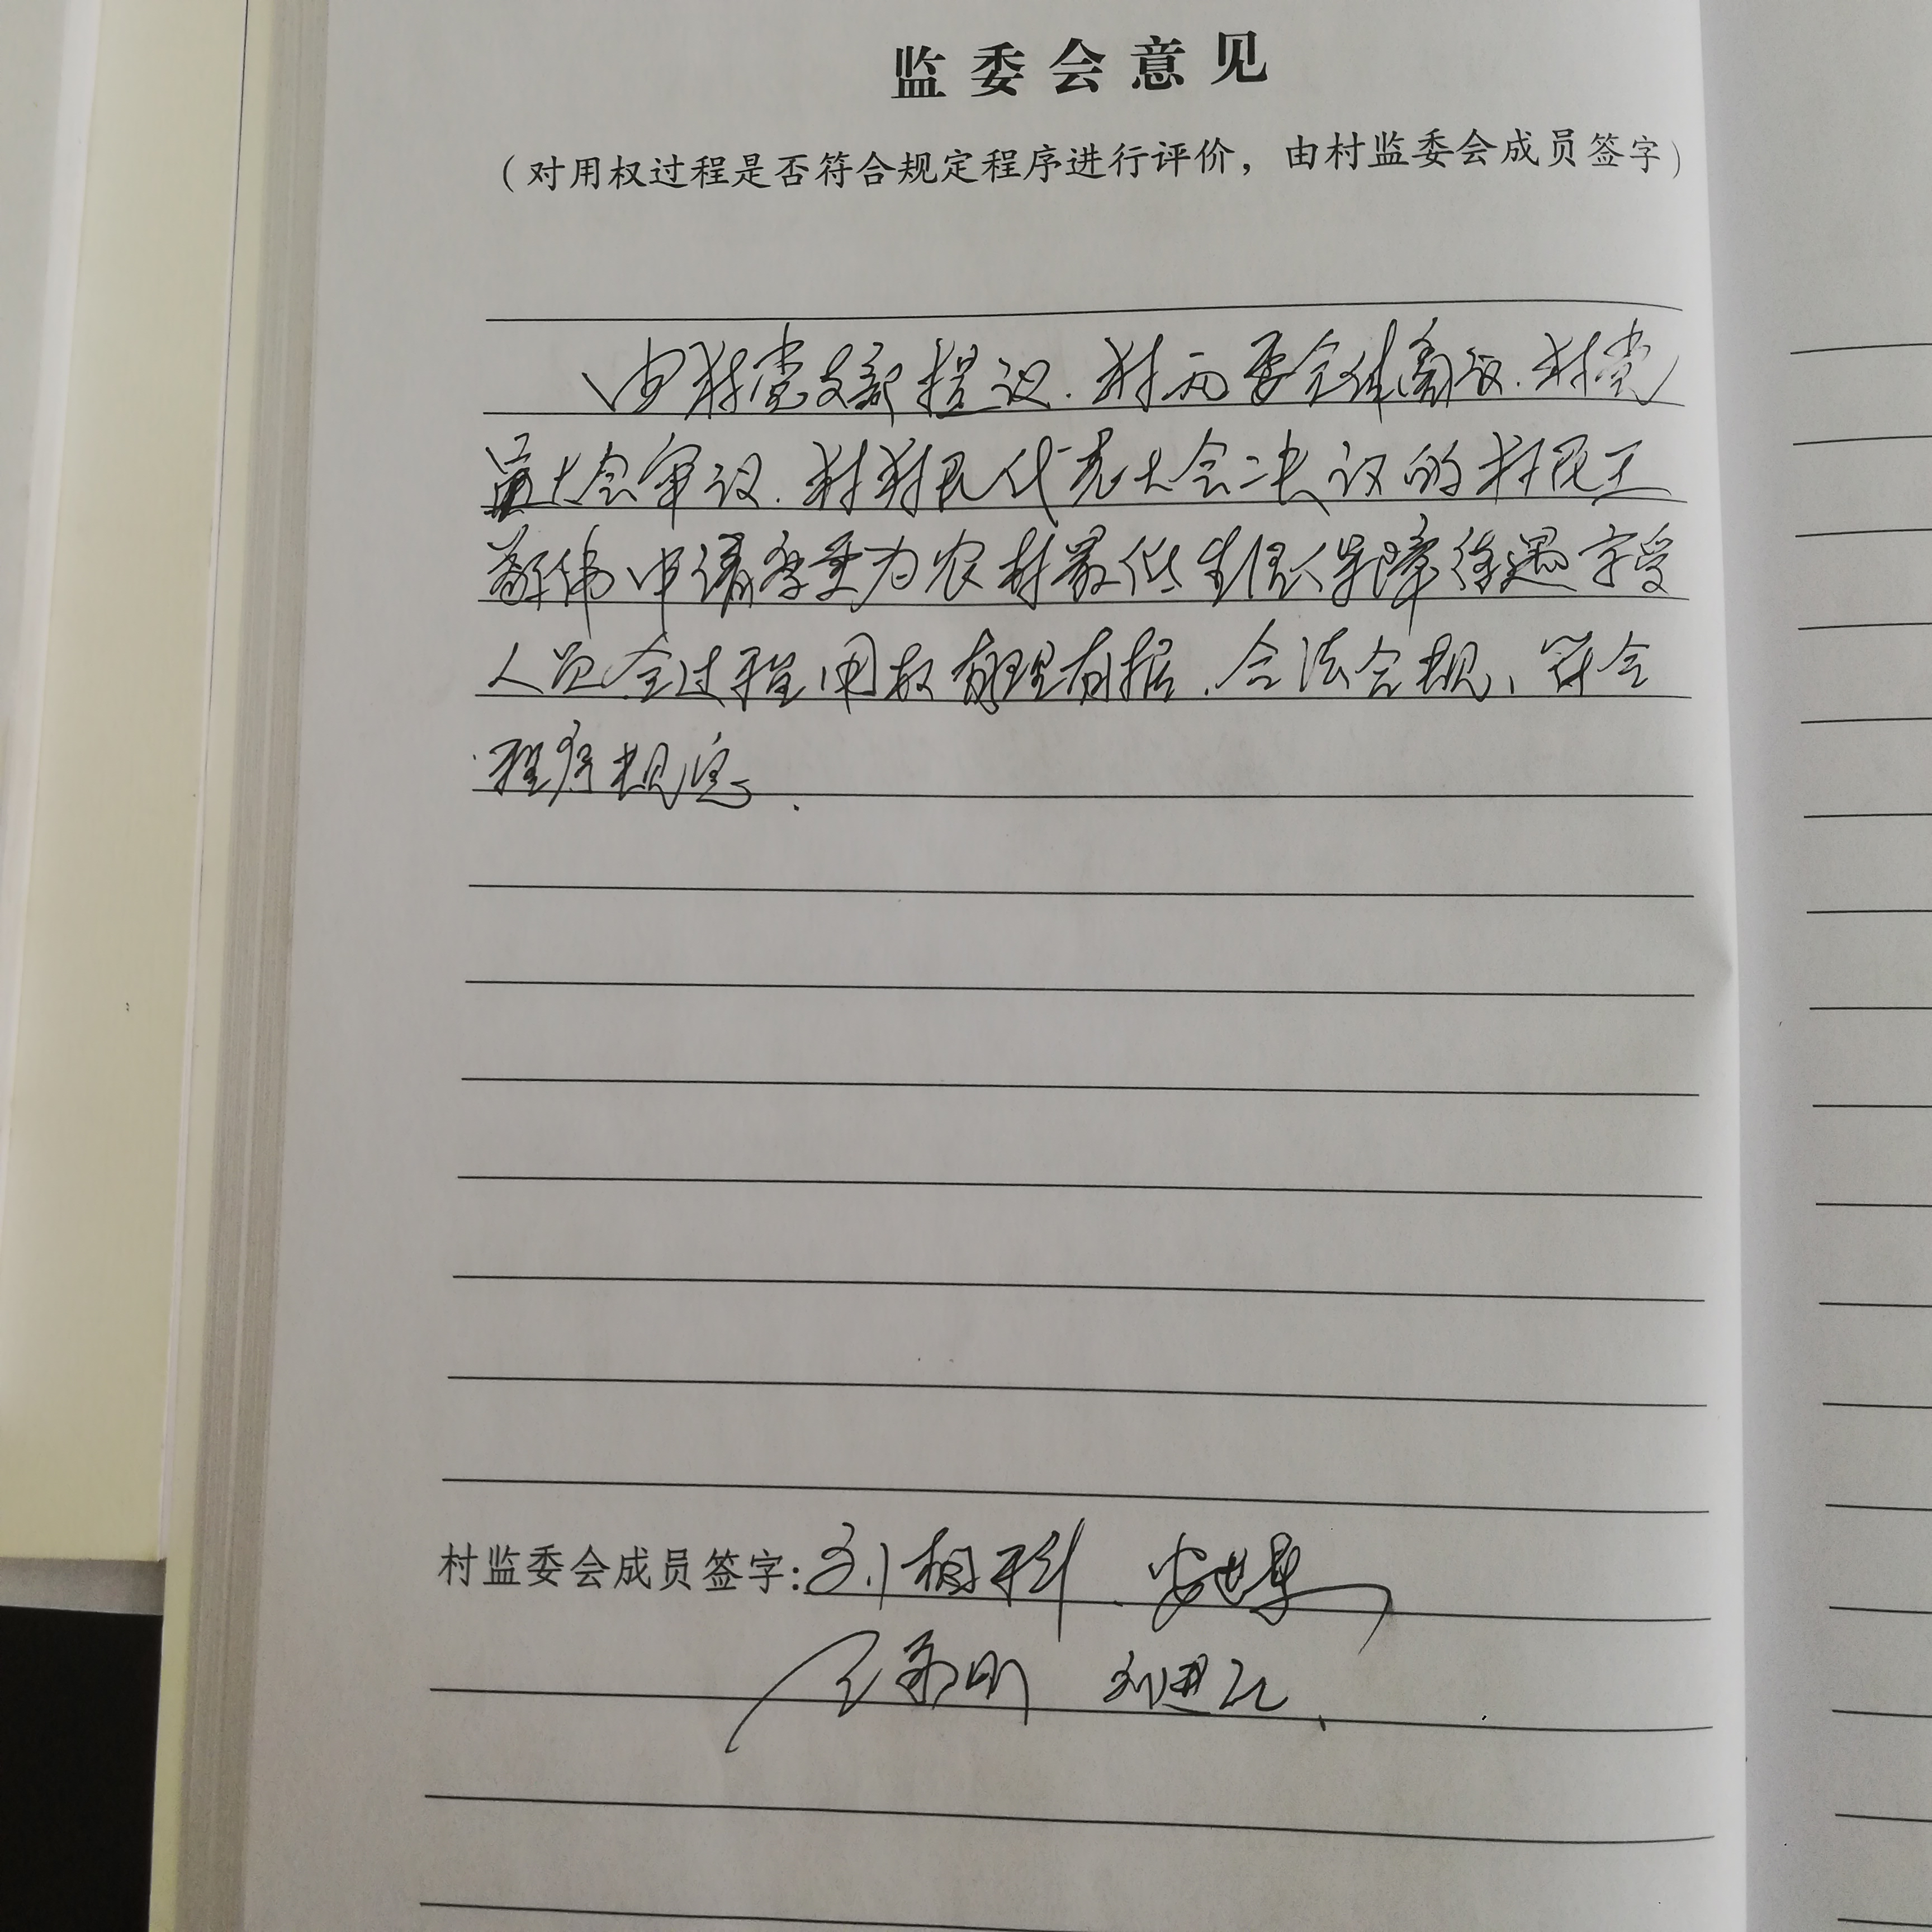 监委会意见
（对用权过程是否符合规定程序进行评价，由村监委会成员签字）
由村党支部提议.村两委会体商议.村党
员大会审议.村村民代表大会决议的村民王
伟申请享受为农村最低生活保障待遇享受
人员全过程用权有理有据.合法合规、符合
程序规定.
村监委会成员签字:刘相科.
王 刚 刘进